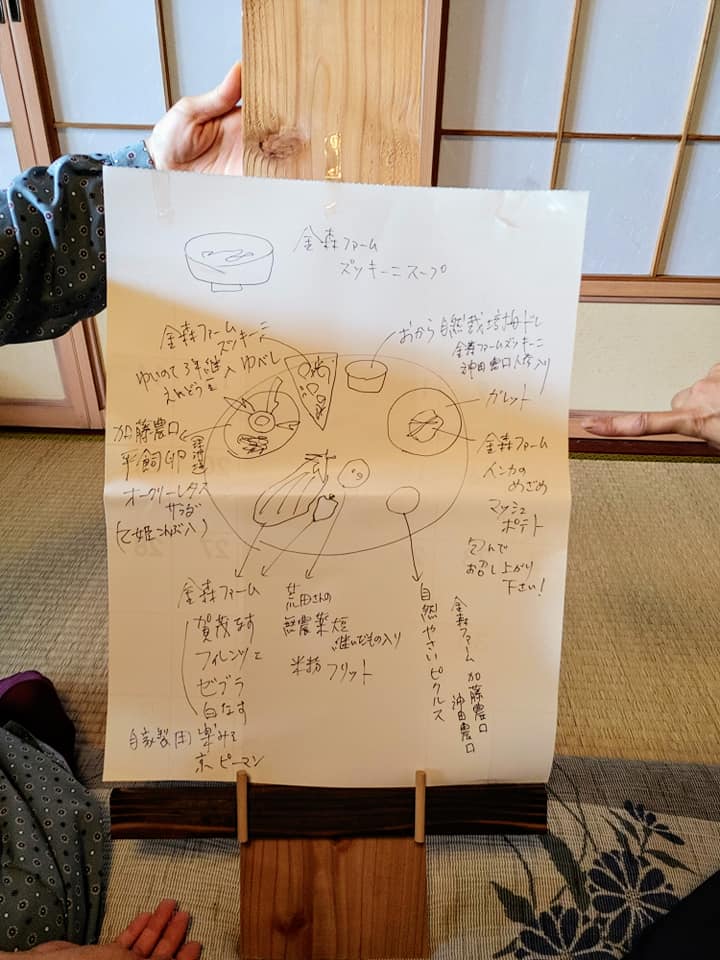 金森ファーム
ズッキーニスープ
金森ファーム
ズッキーニ
ゆいのて3年継入ゆべし
えんどう豆
おから自然栽培梅ドレ
金森ファームズッキーニ
沖田農口人参入り
ガレット
加藤農口
平飼卵
オークリーレタス
サラダ
(乙姫こんぶ入)
金森ファーム
インカの
めざめ
マッシュ
ポテト
包んで
お召し上がり
下さい!
金森ファーム
賀茂なす
フィレンツェ
ゼブラ
白なす
自家製麹みそ
京ピーマン
荒田さんの
無農薬
継いだもの入り
米粉フリット
自然やさいピクルス
金森ファーム 加藤農口
沖田農口